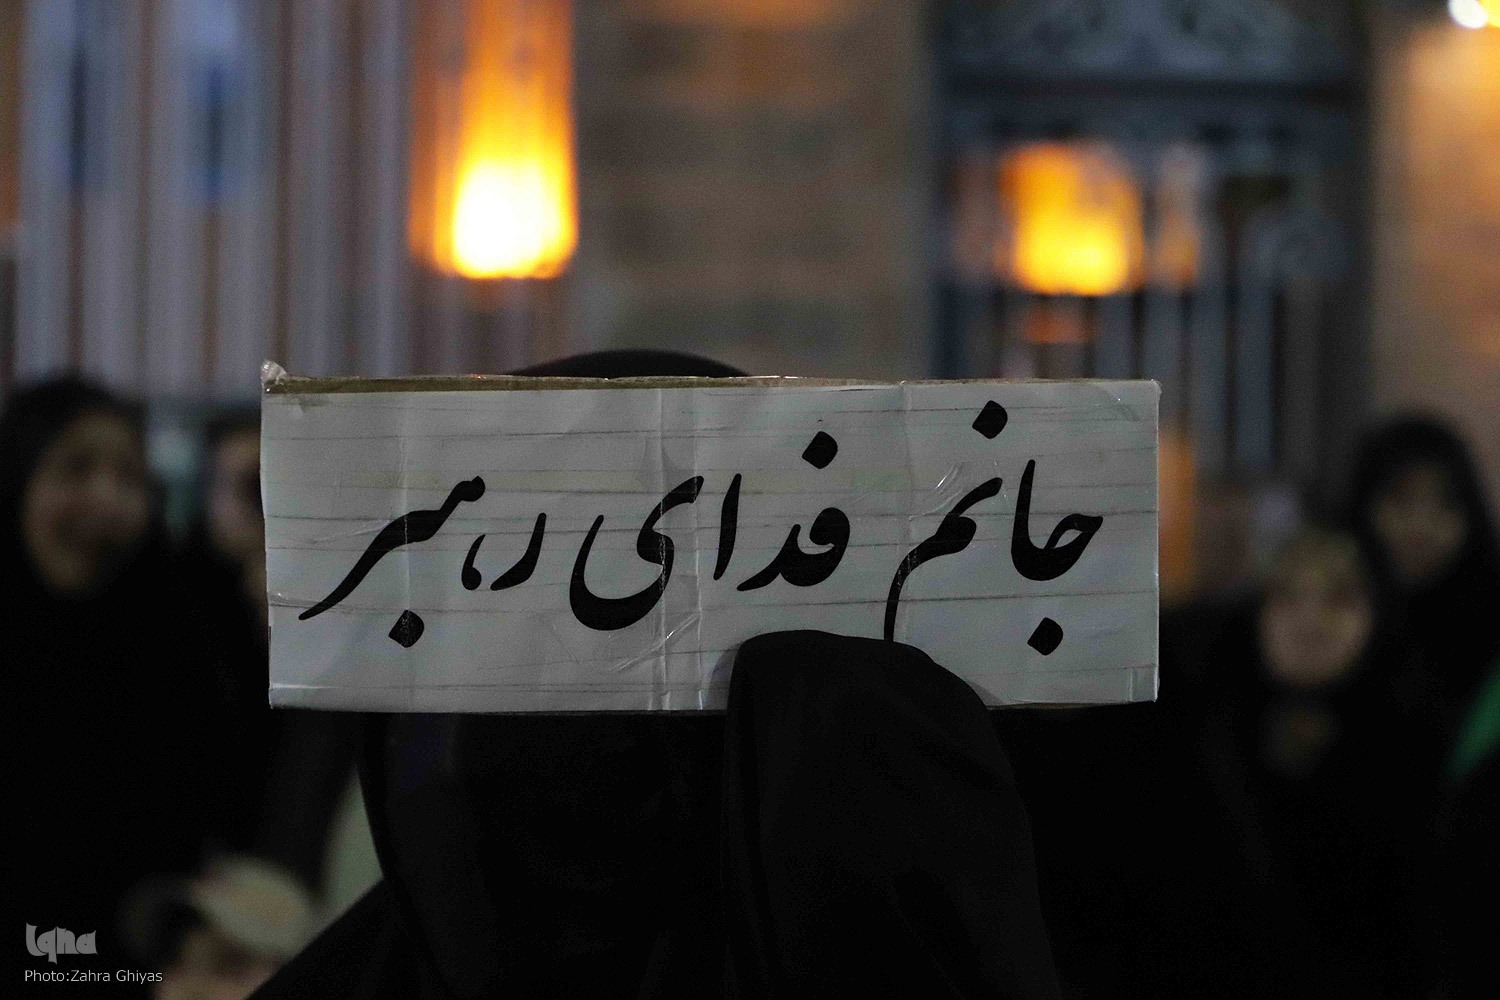 جانم فدای رهبر
Iqna
Photo:Zahra Ghiyas